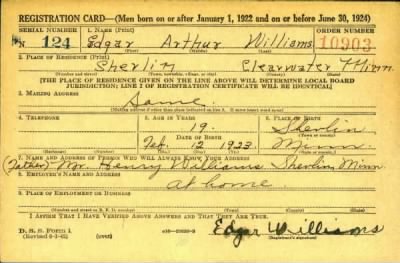 REGISTRATION CARD—(Men born on or after January 1, 1922 and on or before June 30, 1924)
SERIAL NUMBER 1. NAME (Print) ORDER NUMBER
N 124 Edgar Arthur Williams 10903
(First) (Middle) (Last)
2. PLACE OF RESIDENCE (Print)
Shevlin Clearwater Minn.
(Number and street) (Town, township, village, or city) (County) (State)
[THE PLACE OF RESIDENCE GIVEN ON THE LINE ABOVE WILL DETERMINE LOCAL BOARD
JURISDICTION; LINE 2 OF REGISTRATION CERTIFICATE WILL BE IDENTICAL]
3. MAILING ADDRESS
Same.
[Mailing address if other than place indicated on line 2. If same insert word same]
4. TELEPHONE 5. AGE IN YEARS 6. PLACE OF BIRTH
19. Shevlin
DATE OF BIRTH
Feb. 12 1923. Minn.
7. NAME AND ADDRESS OF PERSON WHO WILL ALWAYS KNOW YOUR ADDRESS
Mr. Henry Williams Shevlin, Minn.
8. EMPLOYER'S NAME AND ADDRESS
at home.
9. PLACE OF EMPLOYMENT OR BUSINESS
I AFFIRM THAT I HAVE VERIFIED ABOVE ANSWERS AND THAT THEY ARE TRUE.
D. S. S. FORM 1
Edgar Williams
(Registrant's signature)